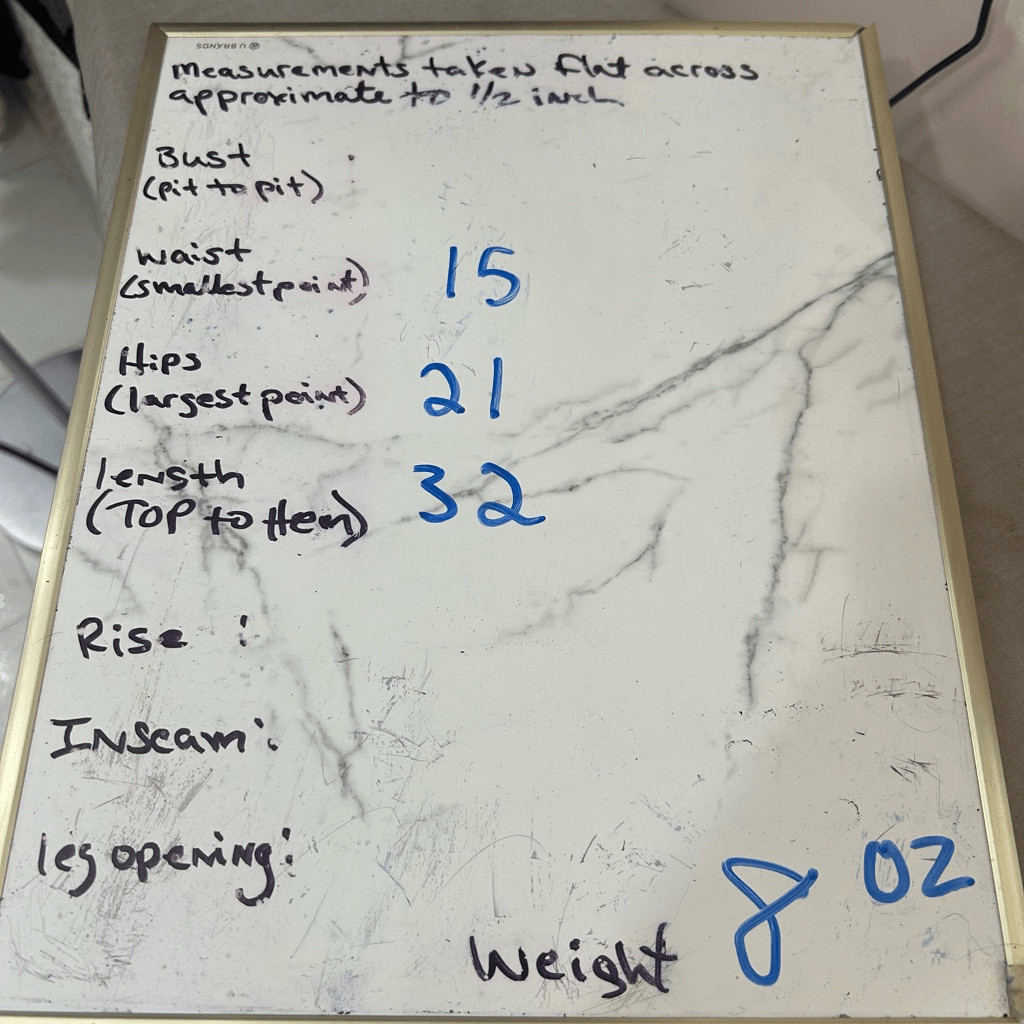 U BRANDS ®
Measurements taken flat across
approximate to 1/2 inch
Bust
(pit to pit)
Waist
(smallest point) 15
Hips
(largest point) 21
length
(TOP to Hem) 32
Rise :
Inseam :
leg opening :
Weight 8 OZ